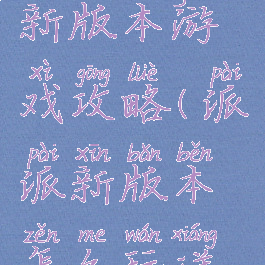 新版本游
xì gōng lüè pài
戏攻略(派
pài xīn bǎn běn
派新版本
zěn me wán xiáng
怎么玩详